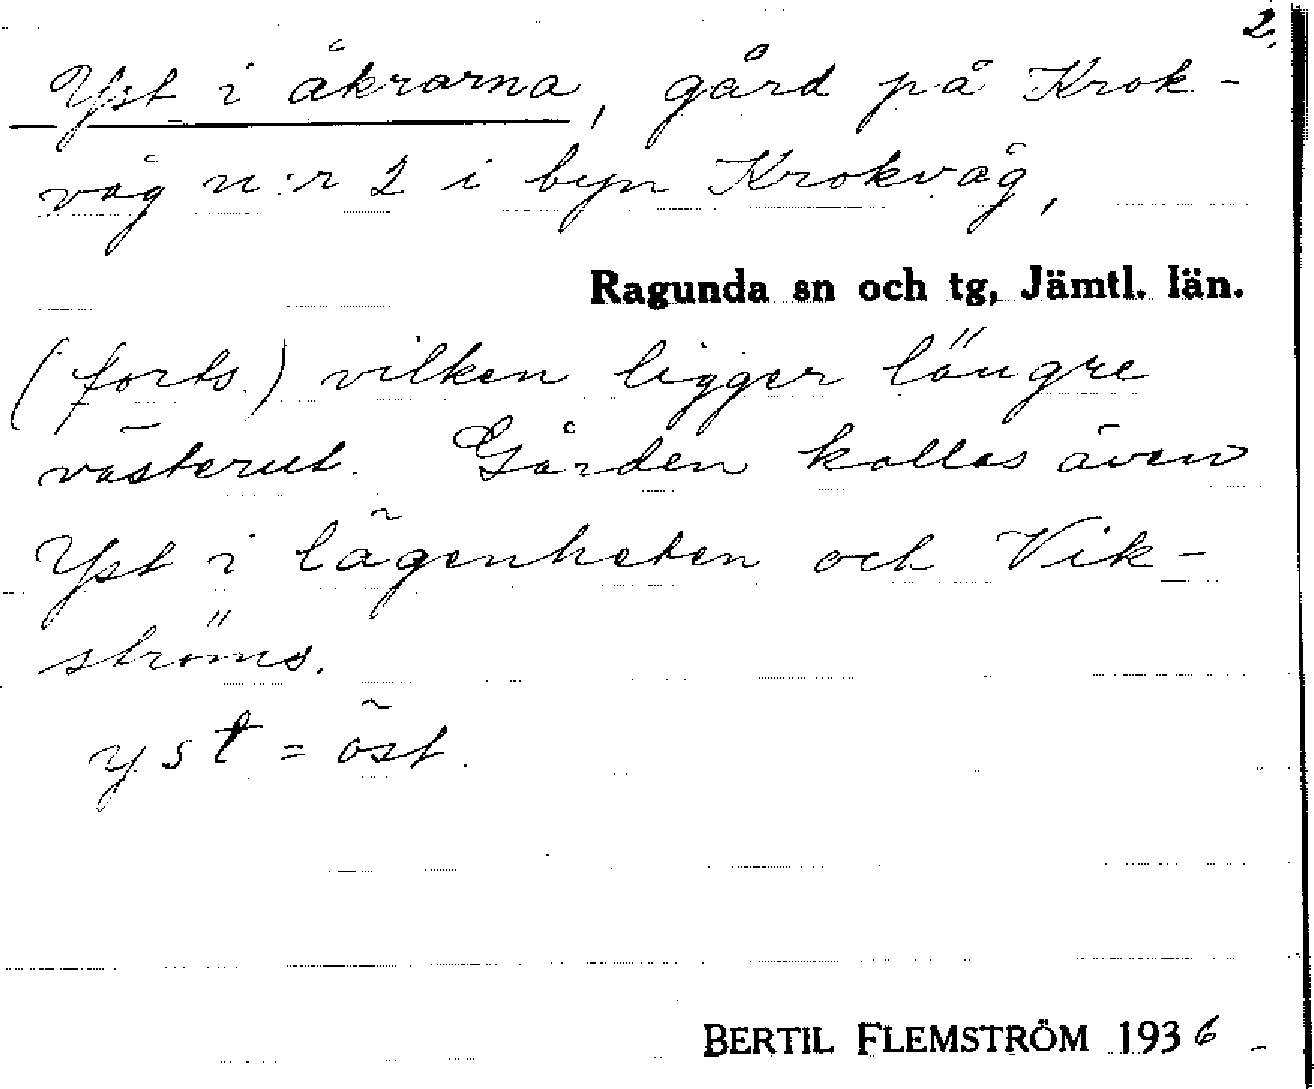 2.
Yst i åkrarna, gård på Krok-
våg n:r 2 i byn Krokvåg,
Ragunda sn och tg, Jämtl. län.
(forts.) vilken ligger längre
västerut. Gården kallas även
Yst i lägenheten och Vik-
ströms.
yst = öst.
BERTIL FLEMSTRÖM 1936